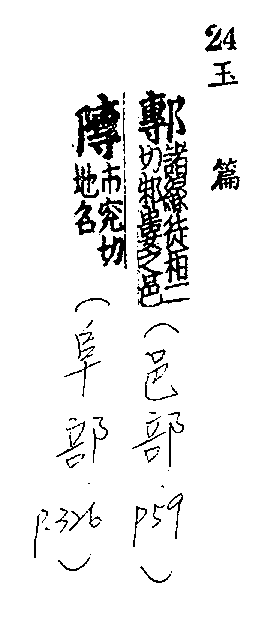 24
玉篇
鄟諸緣徒桓二
切邾婁之邑
（邑部 p59）
䧠市兖切
地名
（阜部 p.326）